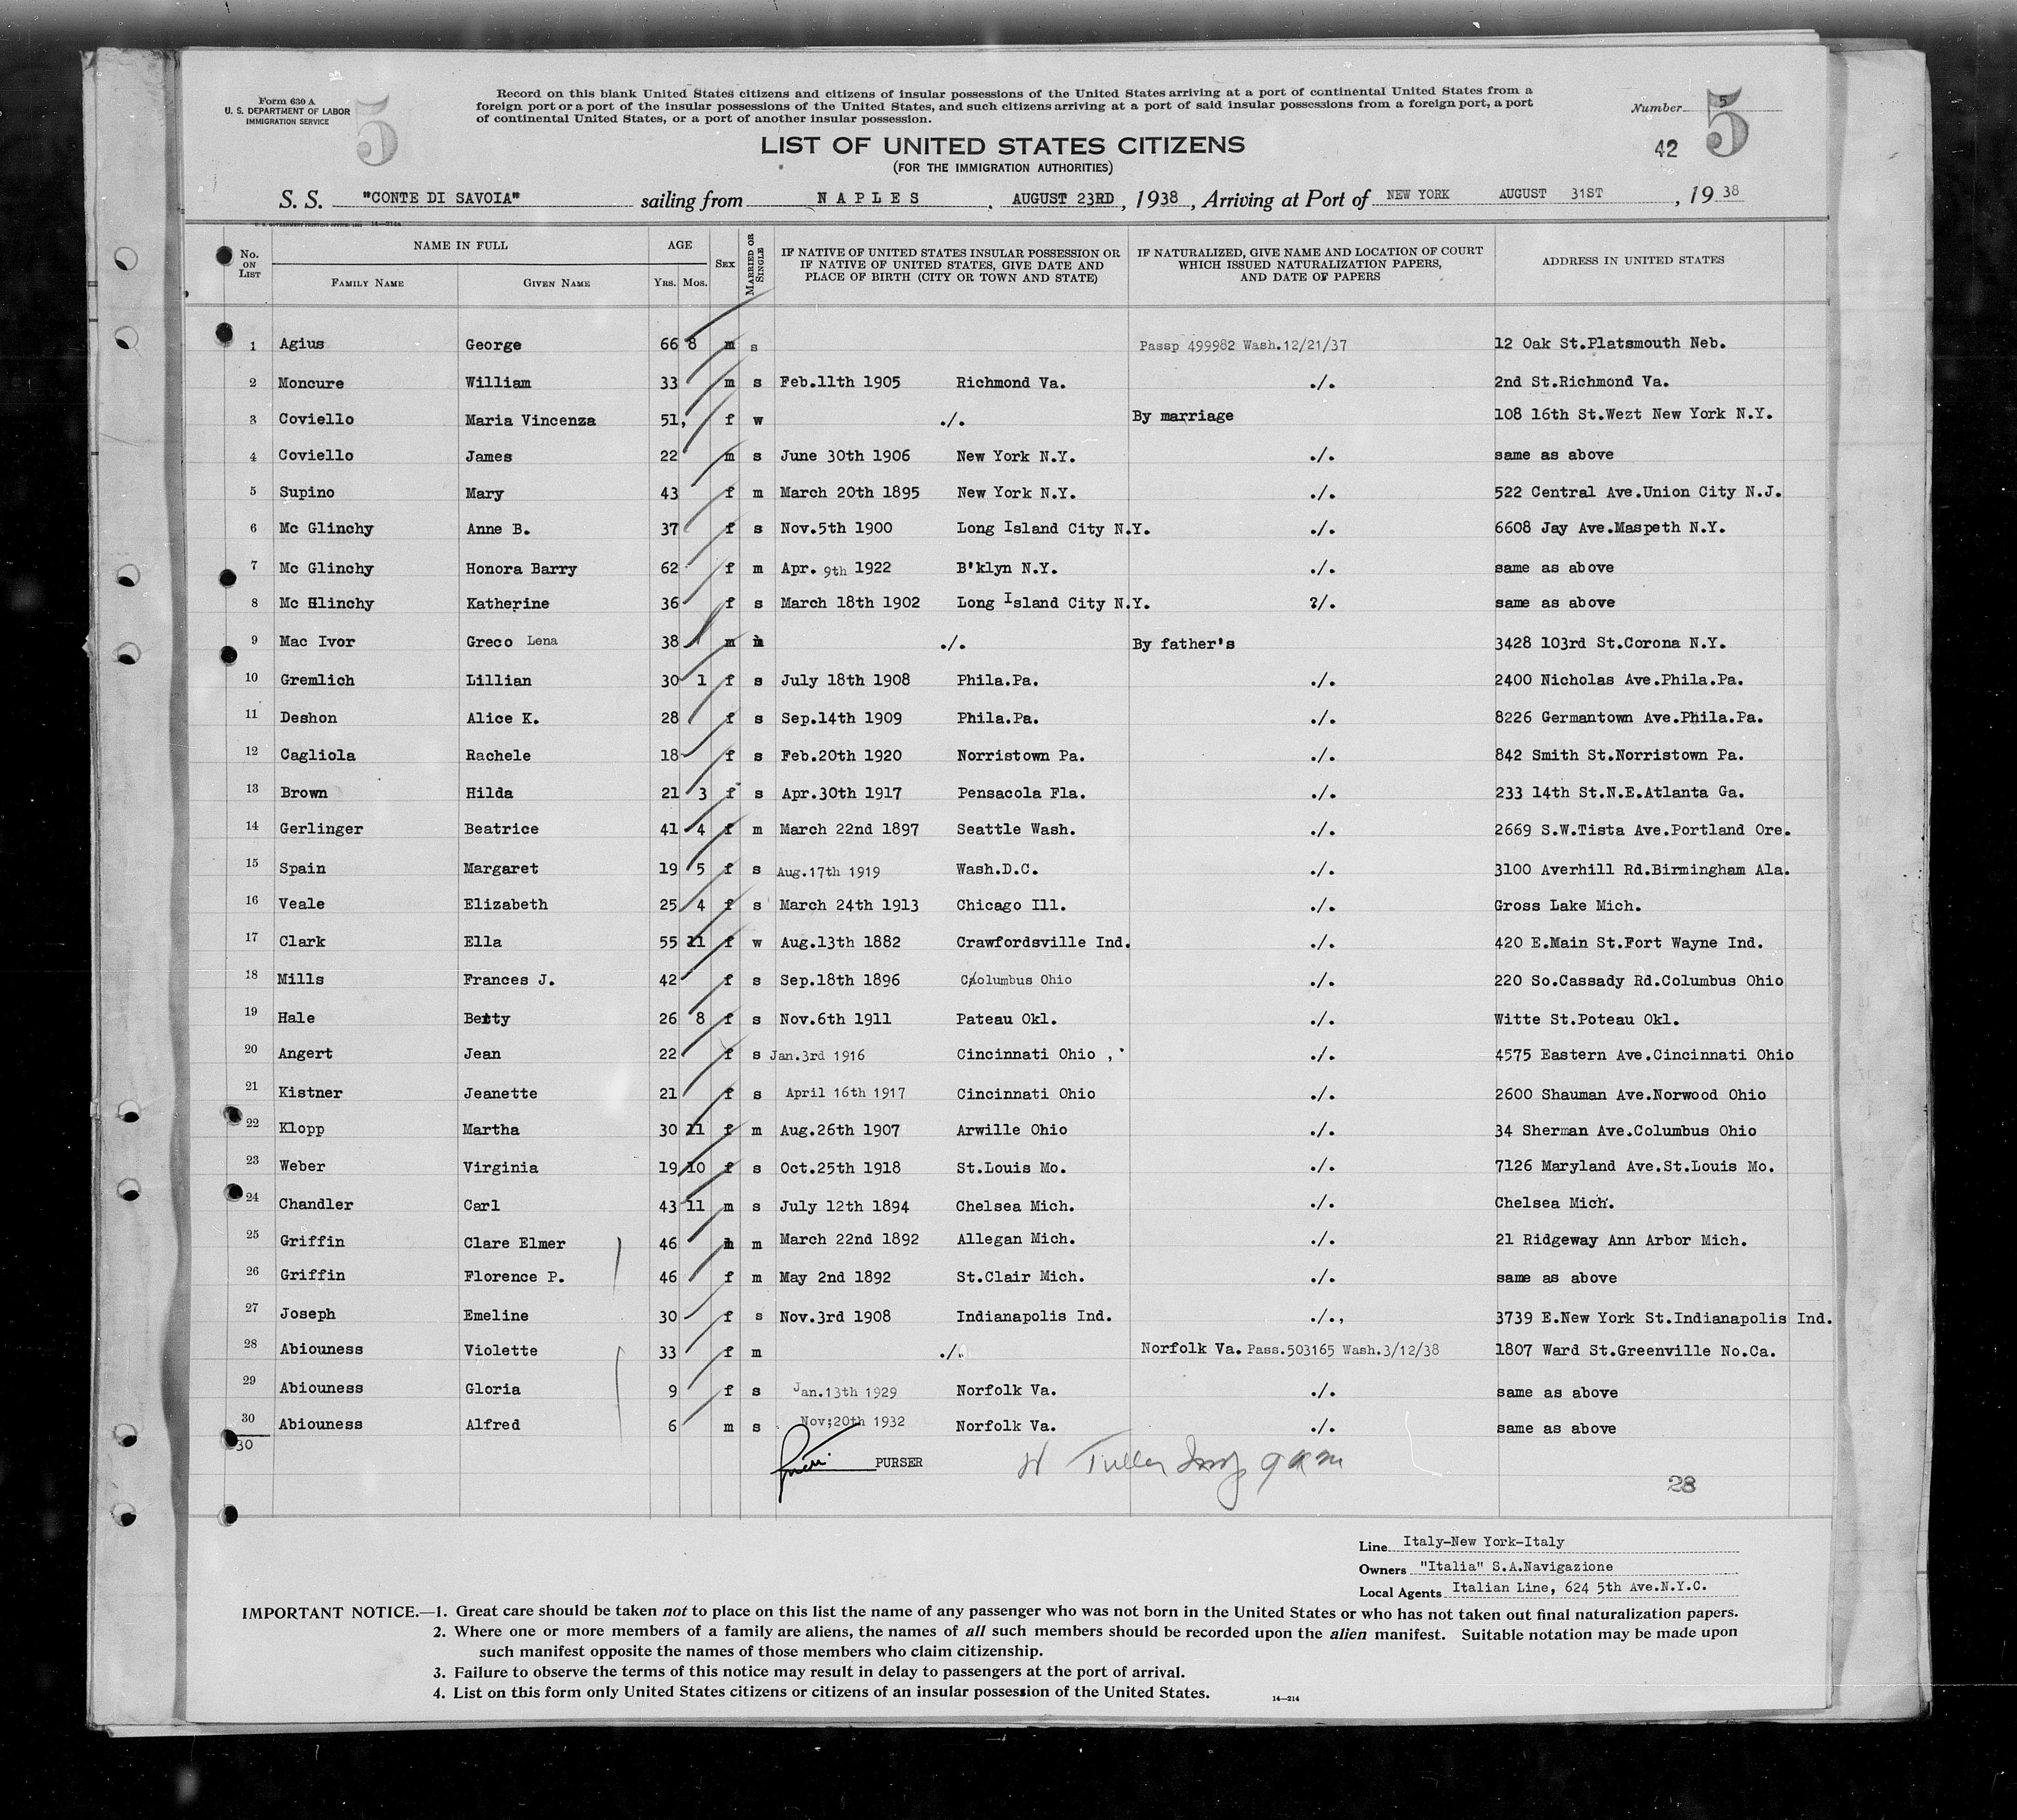 Form 630 A
U. S. DEPARTMENT OF LABOR
IMMIGRATION SERVICE
5
Record on this blank United States citizens and citizens of insular possessions of the United States arriving at a port of continental United States from a
foreign port or a port of the insular possessions of the United States, and such citizens arriving at a port of said insular possessions from a foreign port, a port
of continental United States, or a port of another insular possession.
Number 5
5
42
LIST OF UNITED STATES CITIZENS
(FOR THE IMMIGRATION AUTHORITIES)
S. S. "CONTE DI SAVOIA" sailing from NAPLES, AUGUST 23RD, 1938, Arriving at Port of NEW YORK AUGUST 31ST, 1938
No. ON LIST NAME IN FULL FAMILY NAME GIVEN NAME AGE YRS. MOS. SEX MARRIED OR SINGLE IF NATIVE OF UNITED STATES INSULAR POSSESSION OR IF NATIVE OF UNITED STATES, GIVE DATE AND PLACE OF BIRTH (CITY OR TOWN AND STATE) IF NATURALIZED, GIVE NAME AND LOCATION OF COURT WHICH ISSUED NATURALIZATION PAPERS, AND DATE OF PAPERS ADDRESS IN UNITED STATES
1 Agius George 66 8 m s Passp 499982 Wash.12/21/37 12 Oak St.Platsmouth Neb.
2 Moncure William 33 m s Feb.11th 1905 Richmond Va. ./. 2nd St.Richmond Va.
3 Coviello Maria Vincenza 51, f w ./. By marriage 108 16th St.Wezt New York N.Y.
4 Coviello James 22 m s June 30th 1906 New York N.Y. ./. same as above
5 Supino Mary 43 f m March 20th 1895 New York N.Y. ./. 522 Central Ave.Union City N.J.
6 Mc Glinchy Anne B. 37 f s Nov.5th 1900 Long Island City N.Y. ./. 6608 Jay Ave.Maspeth N.Y.
7 Mc Glinchy Honora Barry 62 f m Apr. 9th 1922 B'klyn N.Y. ./. same as above
8 Mc Hlinchy Katherine 36 f s March 18th 1902 Long Island City N.Y. ?/. same as above
9 Mac Ivor Greco Lena 38 m m ./. By father's 3428 103rd St.Corona N.Y.
10 Gremlich Lillian 30 1 f s July 18th 1908 Phila.Pa. ./. 2400 Nicholas Ave.Phila.Pa.
11 Deshon Alice K. 28 f s Sep.14th 1909 Phila.Pa. ./. 8226 Germantown Ave.Phila.Pa.
12 Cagliola Rachele 18 f s Feb.20th 1920 Norristown Pa. ./. 842 Smith St.Norristown Pa.
13 Brown Hilda 21 3 f s Apr.30th 1917 Pensacola Fla. ./. 233 14th St.N.E.Atlanta Ga.
14 Gerlinger Beatrice 41 4 f m March 22nd 1897 Seattle Wash. ./. 2669 S.W.Tista Ave.Portland Ore.
15 Spain Margaret 19 5 f s Aug.17th 1919 Wash.D.C. ./. 3100 Averhill Rd.Birmingham Ala.
16 Veale Elizabeth 25 4 f s March 24th 1913 Chicago Ill. ./. Gross Lake Mich.
17 Clark Ella 55 11 f w Aug.13th 1882 Crawfordsville Ind. ./. 420 E.Main St.Fort Wayne Ind.
18 Mills Frances J. 42 f s Sep.18th 1896 Columbus Ohio ./. 220 So.Cassady Rd.Columbus Ohio
19 Hale Betty 26 8 f s Nov.6th 1911 Pateau Okl. ./. Witte St.Poteau Okl.
20 Angert Jean 22 f s Jan.3rd 1916 Cincinnati Ohio , ./. 4575 Eastern Ave.Cincinnati Ohio
21 Kistner Jeanette 21 f s April 16th 1917 Cincinnati Ohio ./. 2600 Shauman Ave.Norwood Ohio
22 Klopp Martha 30 11 f m Aug.26th 1907 Arwille Ohio ./. 34 Sherman Ave.Columbus Ohio
23 Weber Virginia 19 10 f s Oct.25th 1918 St.Louis Mo. ./. 7126 Maryland Ave.St.Louis Mo.
24 Chandler Carl 43 11 m s July 12th 1894 Chelsea Mich. ./. Chelsea Mich.
25 Griffin Clare Elmer 46 m m March 22nd 1892 Allegan Mich. ./. 21 Ridgeway Ann Arbor Mich.
26 Griffin Florence P. 46 f m May 2nd 1892 St.Clair Mich. ./. same as above
27 Joseph Emeline 30 f s Nov.3rd 1908 Indianapolis Ind. ./., 3739 E.New York St.Indianapolis Ind.
28 Abiouness Violette 33 f m ./. Norfolk Va. Pass.503165 Wash.3/12/38 1807 Ward St.Greenville No.Ca.
29 Abiouness Gloria 9 f s Jan.13th 1929 Norfolk Va. ./. same as above
30 Abiouness Alfred 6 m s Nov;20th 1932 Norfolk Va. ./. same as above
30
PURSER
28
Line Italy-New York-Italy
Owners "Italia" S.A.Navigazione
Local Agents Italian Line, 624 5th Ave.N.Y.C.
IMPORTANT NOTICE.—1. Great care should be taken not to place on this list the name of any passenger who was not born in the United States or who has not taken out final naturalization papers.
2. Where one or more members of a family are aliens, the names of all such members should be recorded upon the alien manifest. Suitable notation may be made upon
such manifest opposite the names of those members who claim citizenship.
3. Failure to observe the terms of this notice may result in delay to passengers at the port of arrival.
4. List on this form only United States citizens or citizens of an insular possession of the United States.
14—214